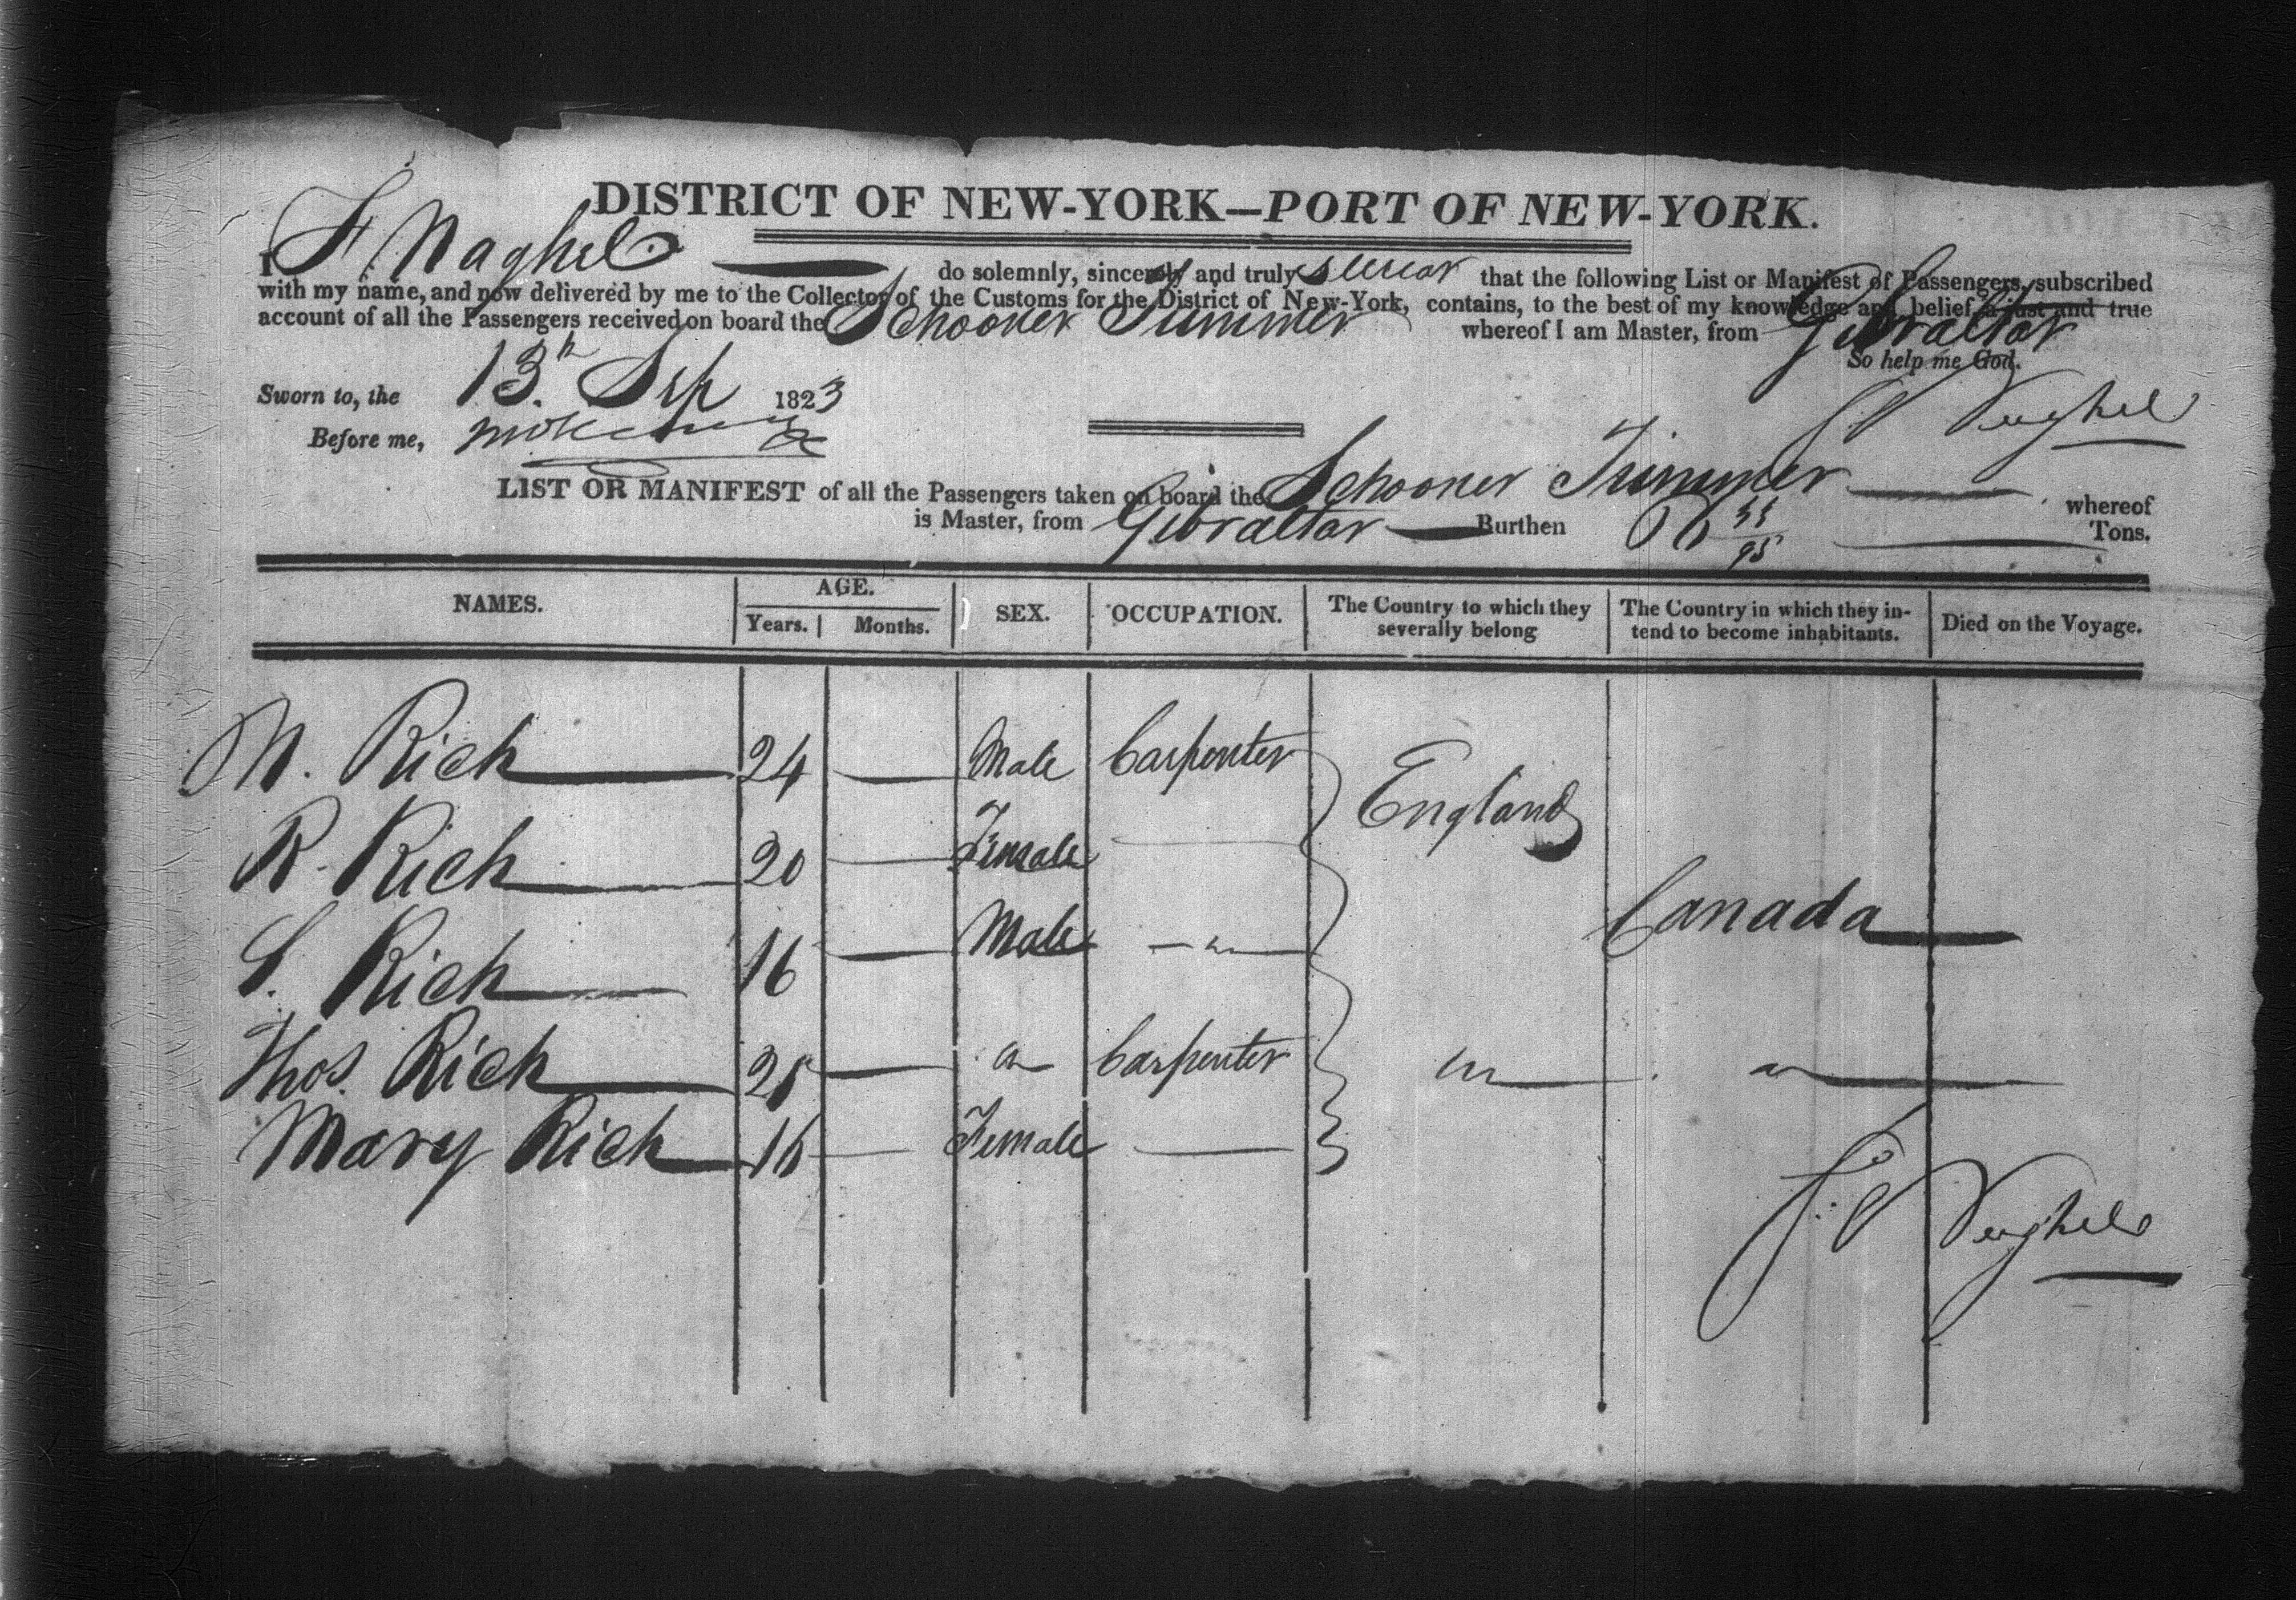 DISTRICT OF NEW-YORK—PORT OF NEW-YORK.
I F Naghel do solemnly, sincerely and truly swear that the following List or Manifest of Passengers, subscribed
with my name, and now delivered by me to the Collector of the Customs for the District of New-York, contains, to the best of my knowledge and belief, a just and true
account of all the Passengers received on board the Schooner whereof I am Master, from Gibraltar
So help me God.
Sworn to, the 13th Sep 1823
Before me,
LIST OR MANIFEST of all the Passengers taken on board the Schooner whereof
is Master, from Gibraltar Burthen Tons.
NAMES. AGE. SEX. OCCUPATION. The Country to which they severally belong The Country in which they intend to become inhabitants. Died on the Voyage.
Years. Months.
M. Rich 24 Male Carpenter
England
R. Rich 20 Female
S. Rich 16 Male
Canada
Thos. Rich 25 Carpenter
Mary Rich 16 Female